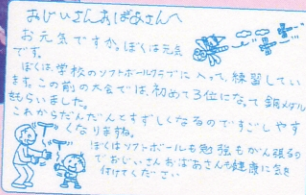 おじいさんおばあさんへ
お元気ですか。ぼくは元気
です。
ぼくは学校のソフトボールクラブに入って、練習してい
ます。この前の大会では、初めて3位になって銅メダル
をもらいました。
これからだんだんとすずしくなるのですごしやす
くなりますね。
ぼくはソフトボールも勉強もがん張るの
でおじいさんおばあさんも健康に気を
付けてください